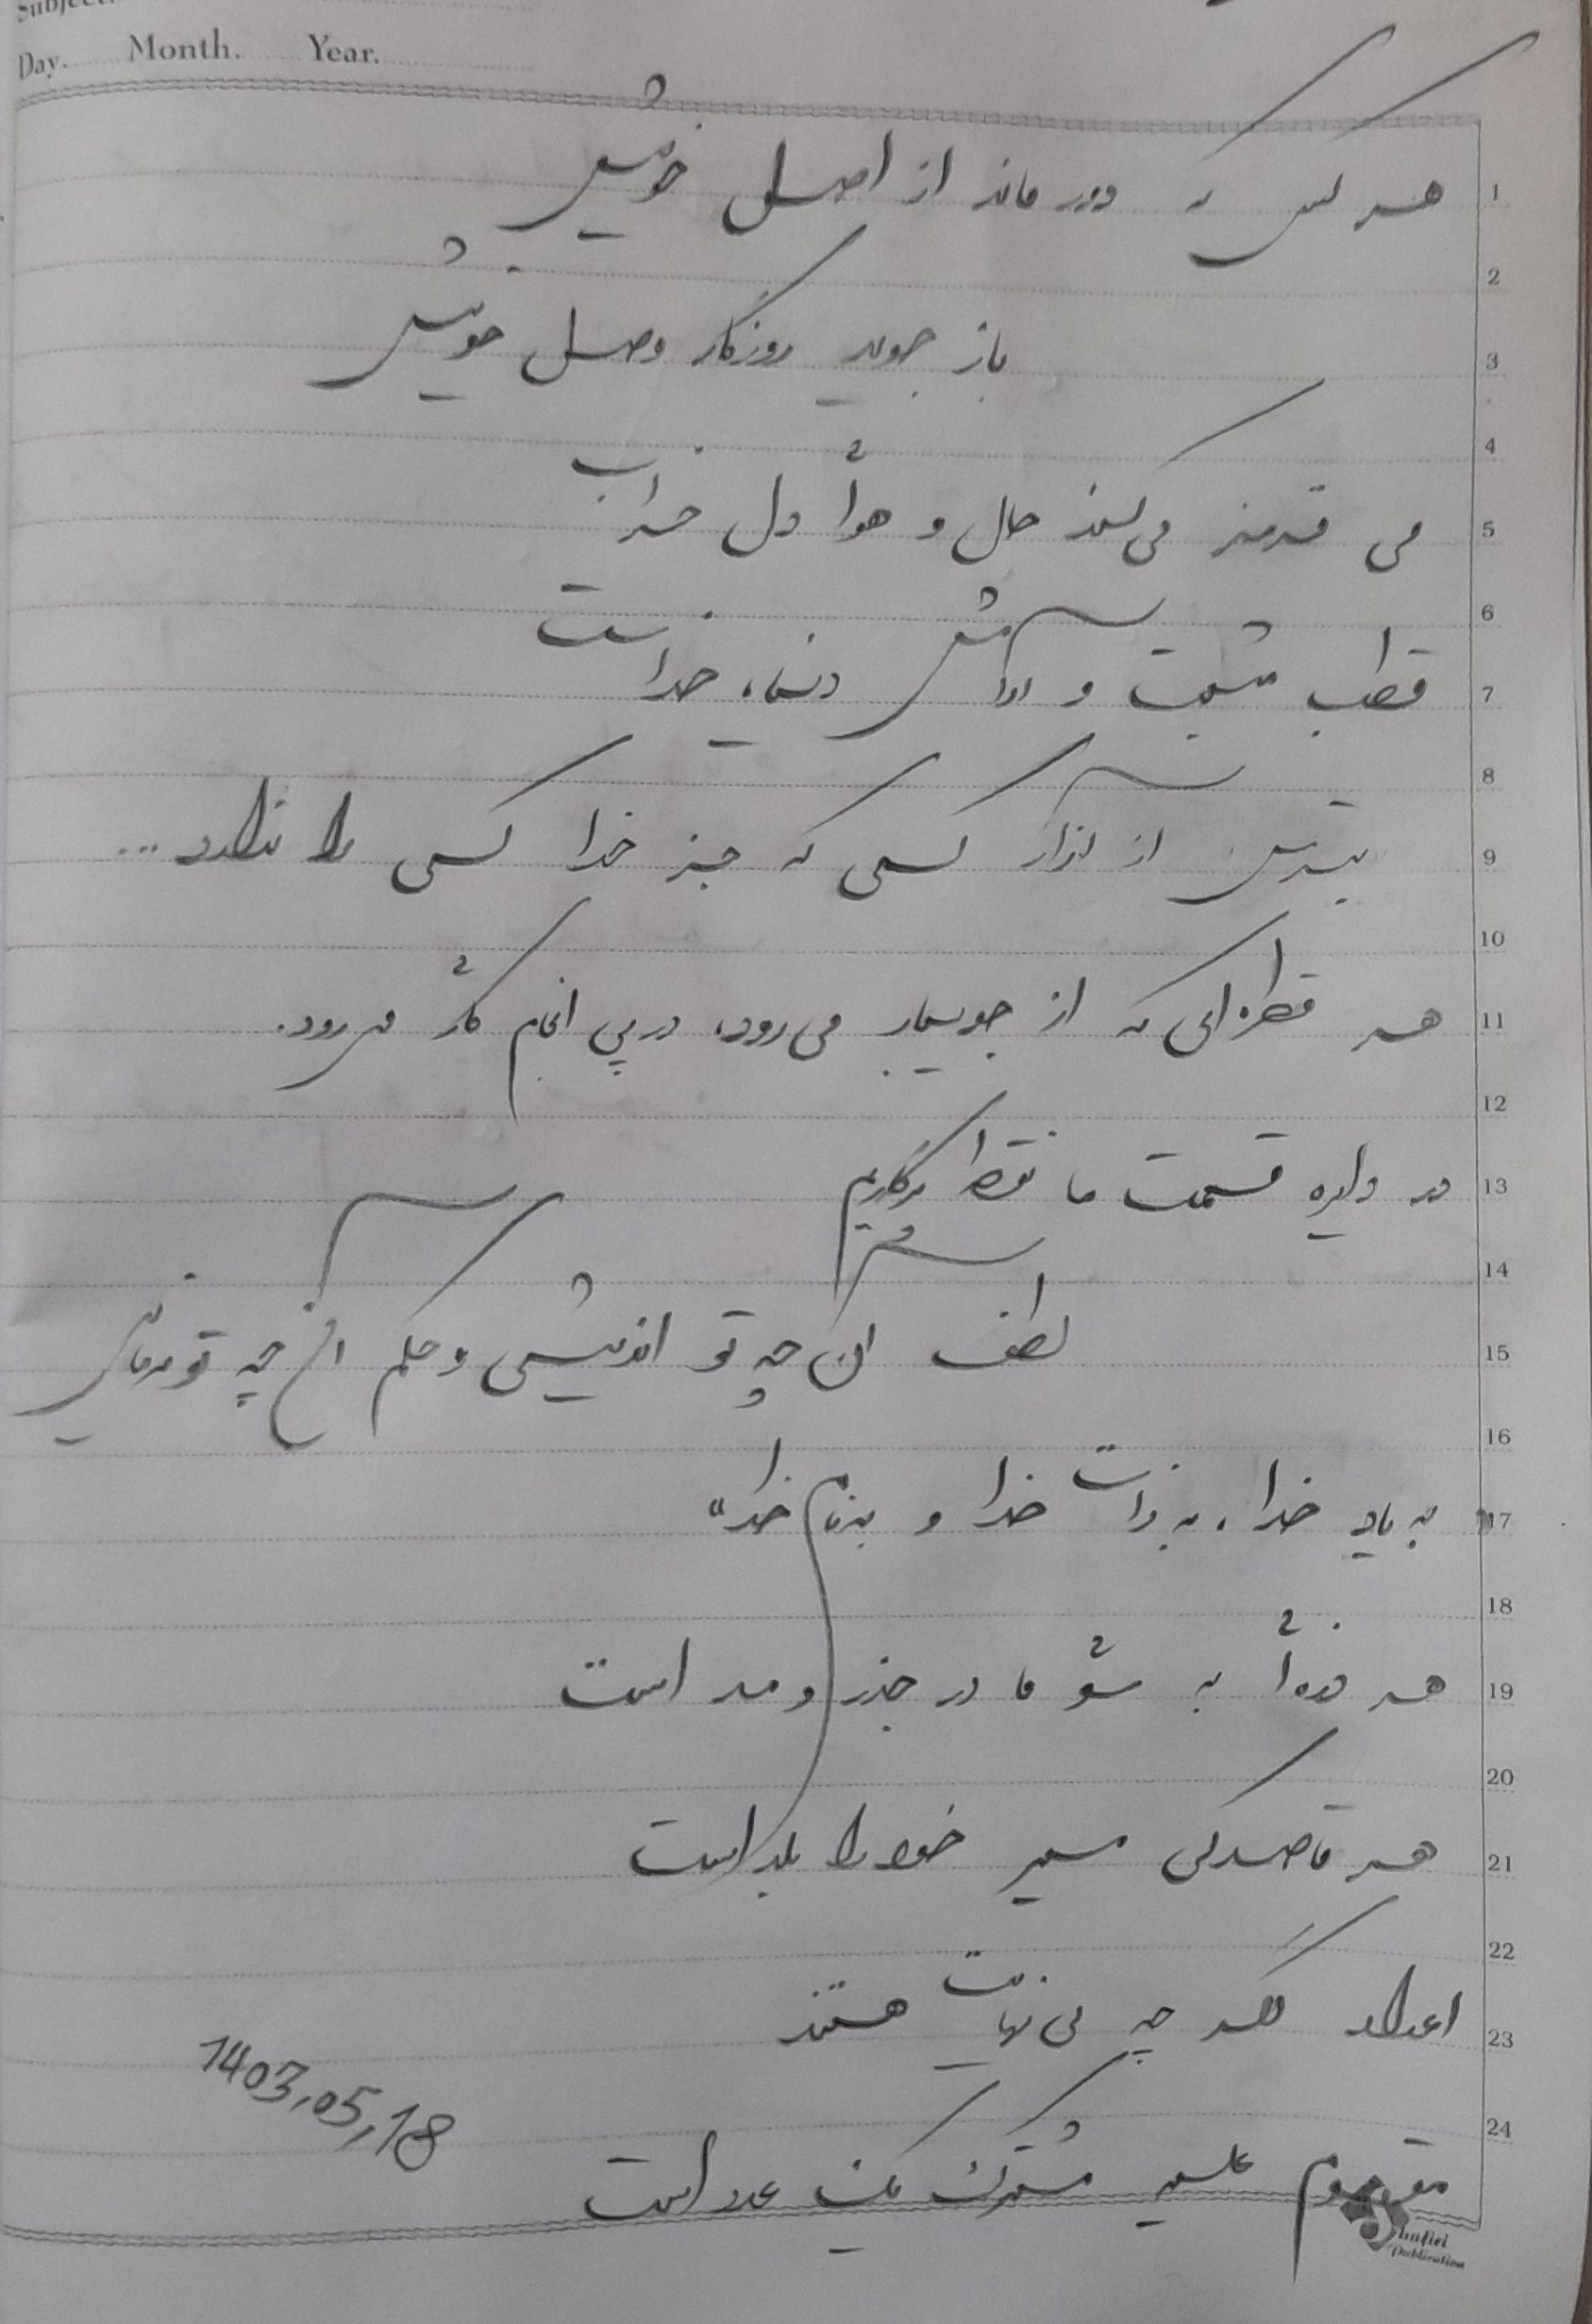 Subject.
Day. Month. Year.
هر کس که دور ماند از اصل خویش
باز جوید روزگار وصل خویش
می قرمز می‌کند حال و هوای دل خراب
قطب مثبت و آرامش دنیا، خداست
بترس از آزار کسی که جز خدا کسی را ندارد...
هر قطره‌ای که از جویبار می‌رود، در پی انجام کاری می‌رود.
در دایره قسمت ما نقطه پرگاریم
لطف آن چه تو اندیشی و حکم آن چه تو فرمایی
به یاد خدا، به ذات خدا و به نام خدا"
هر ذره‌ای به سوی ما در جذر و مد است
هر قاصدکی مسیر خود را بلد است
اعداد اگر چه بی نهایت هستند
مفهوم علیه مشترک یک عدد است
1403,05,18
1
2
3
4
5
6
7
8
9
10
11
12
13
14
15
16
17
18
19
20
21
22
23
24
Publication